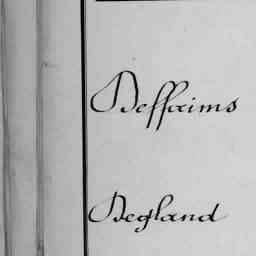 Deffaims
Begland